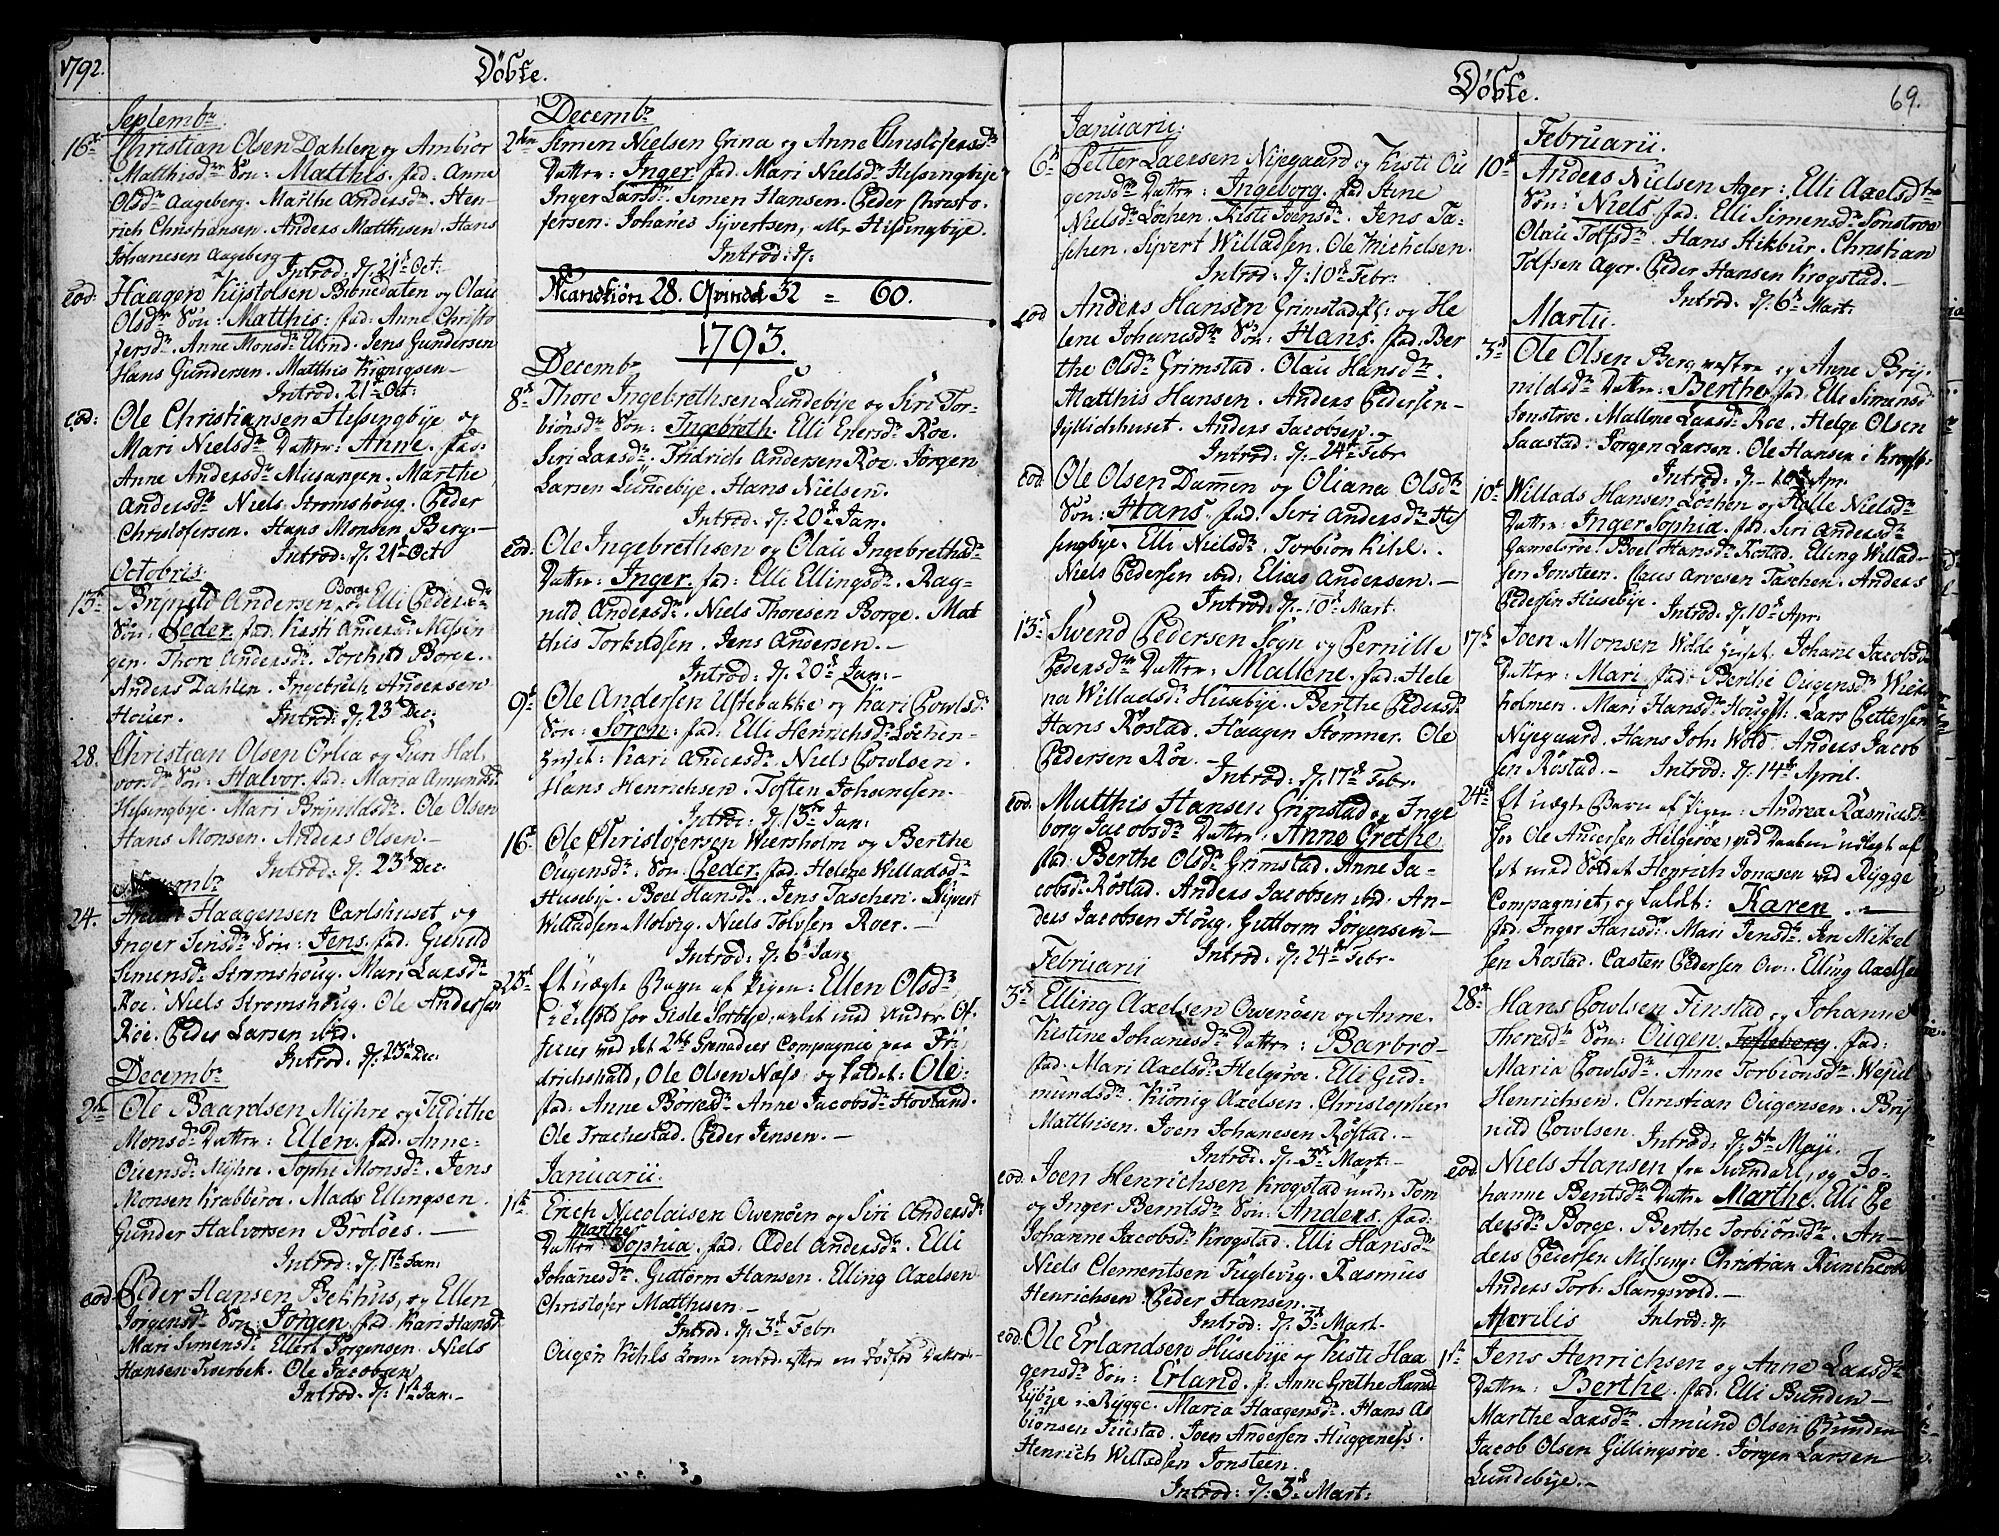 1792.
Döbte.
Septembr
16de Christian Olsen Dahlen og Ambiör
Matthisdr Sön: Matthis. fad. Anne
Olsdr Aageberg. Marthe Andersdr. Hen-
rich Christiansen. Anders Matthisen. Hans
Johanesen Aageberg
Introd: d: 21d Oct:
eod. Haagen Olau
Olsdr Sön: Matthis: fad: Anne Christo
fersdr. Anne Monsdr Jens Gundersen
Hans Gundersen. Matthis
Introd. 21d Oct:
eod: Ole Christiansen Hessingbye og
Mari Nielsdr Datter: Anne. fad:
Anne Andersdr Musangen. Marthe
Andersdr Niels Strømshoug. Peder
Christofersen. Hans Monsen Berg-
Introd: d: 21d Oct
Octobris.
13d Brynild Andersen Borge og Elli Pedersdr
Sön: Peder. fad: Kirsti Andersdr Missin
gen. Thore Andersdr. Torchild Borge.
Anders Dahlen. Ingebreth Andersen
Houer. Introd: d. 23d Dec:
28. Christian Olsen Orlia og Gun Hal-
vorsdr Sön: Halvor. fad: Maria Amundsdr
Hessingbye. Mari Brynildsdr. Ole Olsen
Hans Monsen. Anders Olsen.-
Introd: d. 23d Dec.
24. Haagensen Carlshuset og
Inger Jensdr Sön: Jens. fad. Gunild
Simensdr Strømshoug. Mari Larsdr
Roe. Niels Strømshoug. Ole Andersen
Roe. Peder Larsen ibid.
Introd: d: 23d Dec:
Decembr
2den Ole Baardsen Myhre og
Monsdr Datter: Ellen. fad. Anne
Ouensdr Myhre. Sophe Monsdr. Jens
Monsen Krabberøe. Mads Ellingsen.
Gunder Halvorsen Broløes.-
Introd: d. 1te Jan:
eod Peder Hansen Bekhus, og Ellen
Jörgensdr Sön: Jörgen. fad. Kari Hansdr
Mari Simensdr Ellert Jörgensen. Niels
Hansen Tverbek. Ole Jacobsen
Introd. d: 1te Jan.-
Decembr
2den Simen Nielsen Grina og Anne Christofersdr
Datter: Inger. fad. Mari Nielsdr Hessingbye
Inger Larsdr. Simen Hansen. Peder Christo-
fersen. Johanes Syvertsen, alle Hessingbye.
Introd: d:
Mandkiön 28. Qvindek 32 = 60.
1793.
Decembr
8d Thore Ingebrethsen Lundebye og Siri Tor-
biönsdr Sön: Ingebreth. Elli Enersdr Roe.
Siri Larsdr. Fridrich Andersen Roe. Jörgen
Larsen Lundebye. Hans Nielsen.
Introd: d: 20d Jan.
eod. Ole Ingebrethsen og Olau Ingebrethsdr
Datter: Inger. fad: Elli Ellingsdr. Rag-
nild Andersdr. Niels Thoresen Borge. Mat
this Torkildsen. Jens Andersen.-
Introd: d: 20d Jan:-
9d Ole Andersen Ustebakke og Kari Powlsdr
Sön: Sören: fad: Elli Henrichsdr Löchen-
huset. Kari Andersdr. Niels Powlsen.
Hans Henrichsen. Tosten Johanesen.
Introd: d: 13de Jan:
16d Ole Christofersen Wiersholm og Berthe
Ougensdr Sön Peder. fad. Helene Willadsdr
Husebye. Boel Hansdr. Jens Taschen. Syvert
Willadsen Molvig. Niels Tolvsen Roer.-
Introd: d: 6d Jan
23d Et uægte Barn af Pigen: Ellen Olsdr
for Gisle Torbye, avlet med Under Of-
ficier ved det 2det Grenadeer Compagnie paa Fri
drichshald, Ole Olsen Næss: og kaldet: Ole:
fad: Anne Borresdr Anne Jacobsdr Hovland.
Ole Trachestad. Peder Jensen.-
Januarii.
1te Erich Nicolaisen Owenöen og Siri Andersdr
Datter Marthe Sophia. fad. Edel Andersdr. Elli
Johanesdr. Guttorm Hansen. Elling Axelsen
Christofer Matthisen.-
Introd. d: 3d Febr
Ougen Kihls Kone introd. efter en dödföd Datter.-
Döbte.
69.
Januarii.
6te Petter Laersen Nyegaard og Kisti Ou
gensdr Datter: Ingeborg. fad Anne
Nielsdr Löchen. Kisti Joensdr. Jens Ta-
schen. Syvert Willadsen. Ole Michelsen.
Introd: d: 10d Febr:
eod Anders Hansen Grimstadft: og He
lene Johanesdr Sön: Hans. fad: Ber
the Olsdr Grimstad. Olau Hansdr.
Matthis Hansen. Anders Pedersen-
Gyllichhuset. Anders Jacobsen.-
Introd: d:- 24d Febr
eod. Ole Olsen Dammen og Oliana Olsdr
Sön: Hans. fad: Siri Andersdr Hes
singbye. Elli Nielsdr. Torbion Kihl.
Niels Pedersen ibid: Elias Andersen.-
Introd: d:- 10d Mart:
13d Swend Pedersen Sogn og Pernille
Pedersdr Datter: Mallene. fad: Hele
na Willadsdr Husebye. Berthe Pedersdr
Hans Röstad. Haagen Stommer. Ole
Pedersen Roe.-
Introd: d: 17d Febr.
eod. Matthis Hansen Grimstad og Inge
borg Jacobsdr Datter: Anne Grethe.
fad: Berthe Olsdr Grimstad. Anne Ja-
cobsdr Röstad. Anders Jacobsen ibid. An-
ders Jacobsen Houg. Guttorm Jörgensen-
Introd: d: 24d Febr.
Februarii
3d Elling Axelsen Owenöen og Anne
Kistine Johanesdr Datter: Barbro-
fad: Mari Axelsdr Helgeroe. Elli Gud-
mundsdr. Kionig Axelsen. Christopher
Matthisen. Joen Johanesen Röstad.-
Introd. d: 3d Mart:-
eod. Joen Henrichsen Krogstad under Tom
og Inger Berntsdr Sön: Anders. fad:
Johanne Jacobsdr Krogstad. Elli Hansdr
Niels Clementsen Fuglevig. Rasmus
Henrichsen Peder Hansen.-
Introd: d. 3d Mart.-
eod: Ole Erlandsen Husebye og Kisti Haa
gensdr Sön: Erland. f: Anne Grethe Hansdr
Lybye i Rygge. Maria Haagensdr. Hans As
biönsen Tiustad. Joen Andersen Huggeness.
Henrich Willadsen Jonsteen.
Introd: d: 3d Mart:
Februarii.
10d Anders Nielsen Ager: Elli Axelsdtr
Sön: Niels. fad: Elli Simensdr Sonstroe
Olau Tolfsdr. Hans Stikbur. Christian
Tolfsen Ager. Peder Hansen Krogstad.-
Introd: d: 6d Mart:
Martii.
3d Ole Olsen Berg vestre og Anne Bry-
nildsdr Datter: Berthe. fad: Elle Simensdr
Sonstroe. Mallene Larsdr Roe. Helge Olsen
Saastad. Jörgen Larsen. Ole Hansen i Krogst:
Introd: d:- 10d Apr.
10d Willads Hansen Löchen og Halle Nielsdr
Datter: Inger Sophia. fad: Siri Andersdr
Gamelsroe. Boel Hansdr Rostad. Elling Willad-
sen Jonsteen. Claus Arvesen Taschen. Anders
Pedersen Husebye. Introd: d: 10d Apr.
17d Joen Monsen Wolde huset. Johane Jacobsdr
Datter: Mari. fad: Berthe Ougensdr Wiers
holmen. Mari Hansdr Hougst: Lars Pettersen
Nyegaard. Hans Joh: Wold. Anders Jacob
sen Röstad.- Introd: d: 14de April.
24d Et uægte Barn af Pigen: Andrea Rasmusdr
for Ole Andersen Helgeroe; ved Daaben udlagt af
let med Soldat Henrich Jonasen ved Rygge
Compagniet, og kaldt: Karen.-
fad: Inger Hansdr. Mari Jensdr. Jen Mikel
sen Rostad. Casten Pedersen Ow: Elling Axelsen
28d Hans Powlsen Finstad og Johanne
Thoresdr Sön: Ougen. fad:
Maria Powlsdr. Anne Torbionsdr. Wessel
Henrichsen. Christian Ougensen. Bryn
nild Powlsen. Introd: d: 5te Maji.
eod Niels Hansen fra og Jo-
hanne Bentsdr Datter Marthe. Elli Pe
dersdr Borge. Berthe Torbiönsdr. An-
ders Pedersen Missing: Christian
Anders Torb: Slangsvold.-
Aprilis Introd: d:
1te Jens Henrichsen og Anne Larsdr
Datter: Berthe. fad. Elli Bunden-
Marthe Larsdr. Amund Olsen Bunden
Jacob Olsen Gillingsroe. Jörgen Larsen
Lundebye.-